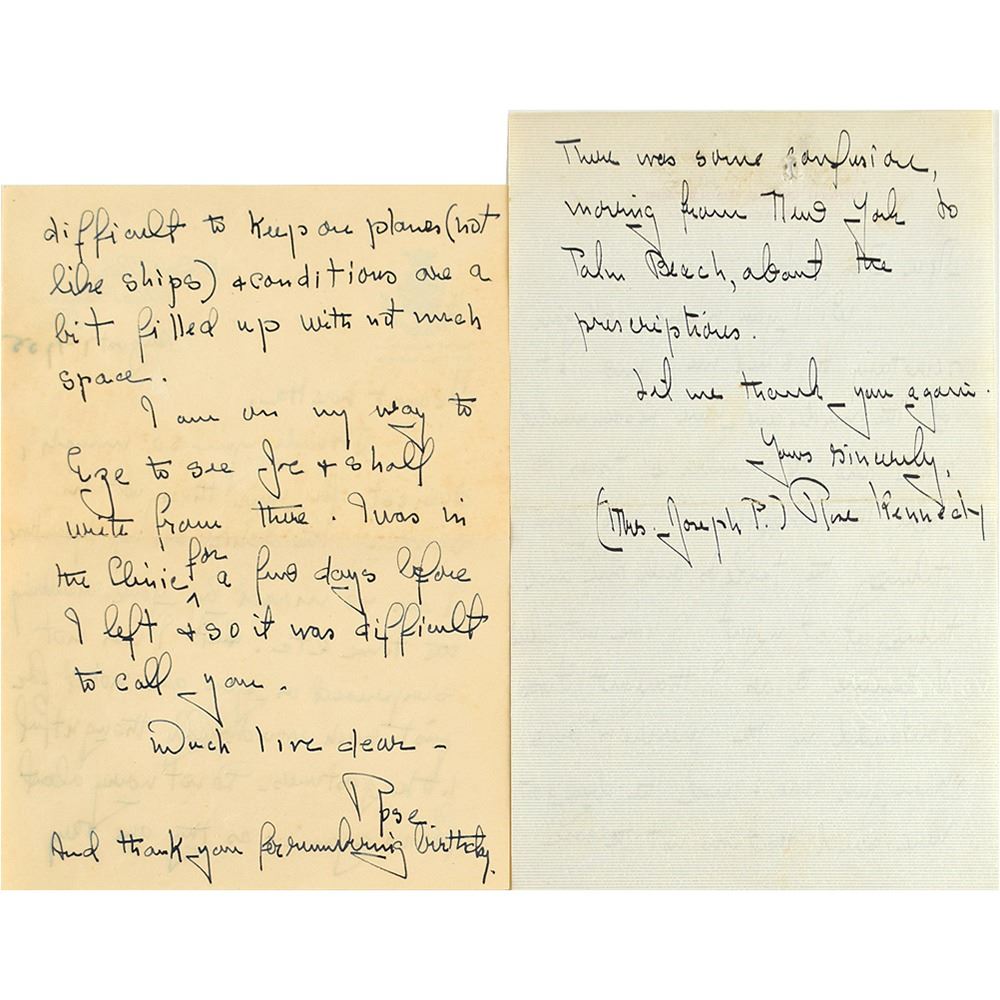 difficult to keep on planes (not
like ships) + conditions are a
bit filled up with not much
space.
I am on my way to
Eze to see Joe + shall
write from there. I was in
the Clinic for a few days before
I left + so it was difficult
to call you.
Much love dear -
Rose
And thank you for remembering birthday.
There was some confusion,
moving from New York to
Palm Beach, about the
prescriptions.
Let me thank you again.
Yours sincerely,
(Mrs. Joseph P.) Rose Kennedy